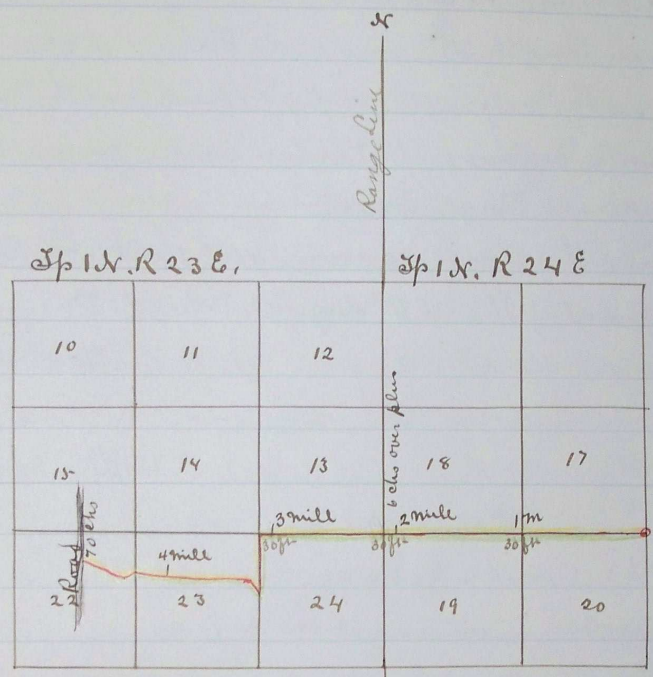 N
Range Line
Tp 1 N. R 23 E.
Tp 1 N. R 24 E
10
11
12
6 chs over plus
15
14
13
18
17
70 chs
3 mill
2 mile
1 m
30 ft
30 ft
30 ft
Road
4 mill
22
23
24
19
20